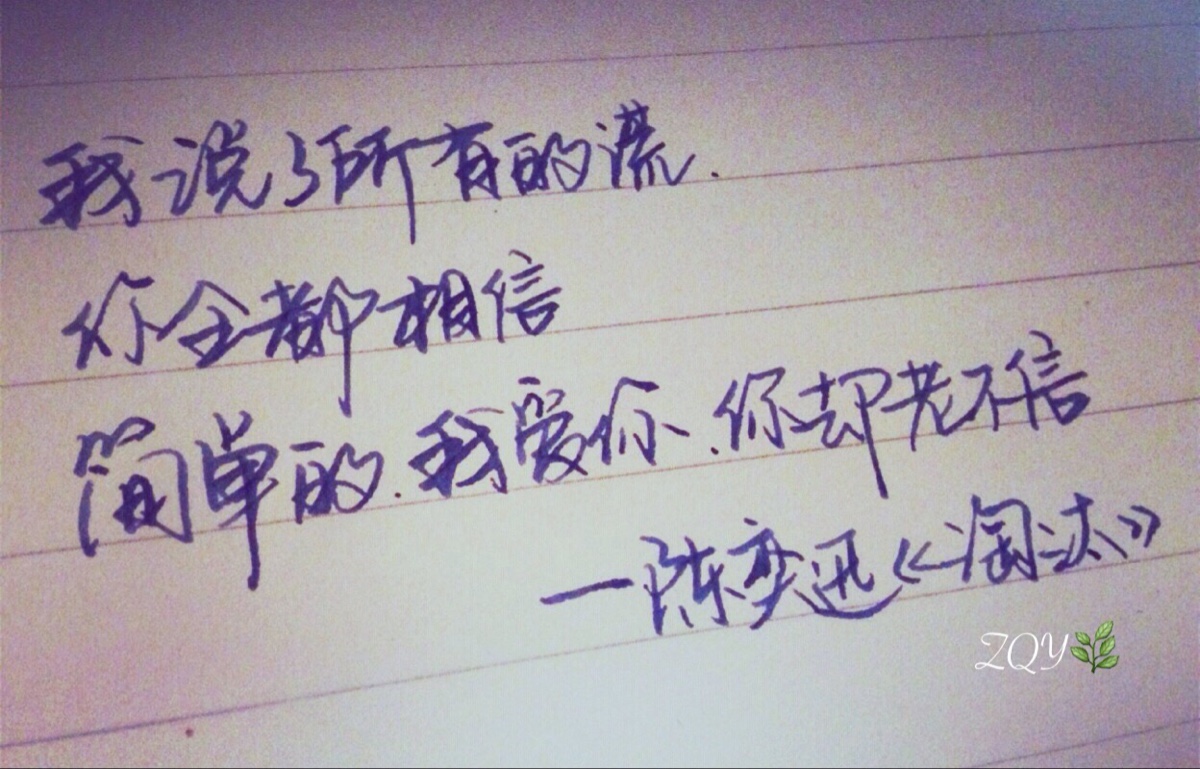 我说了所有的谎.
你全都相信
简单的.我爱你.你却老不信
一陈奕迅《淘汰》
ZQY